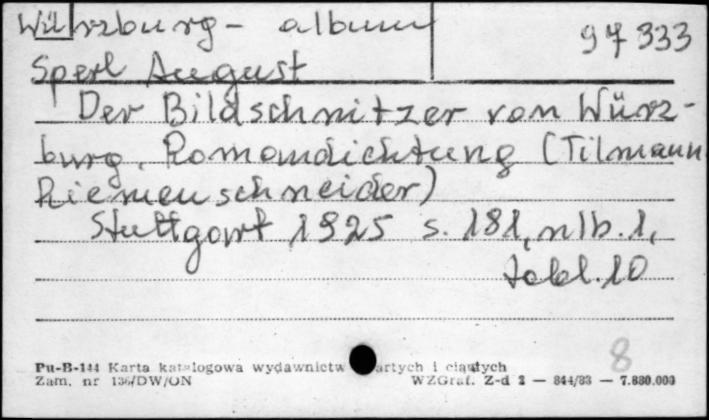 Würzburg - album
97333
Sperl August
Der Bildschnitzer von Würz-
burg. Romandichtung (Tilmann
Riemenschneider)
Stuttgart 1925 s. 181, nlb. 1,
tabl. 10
8
Pu-B-144 Karta katalogowa wydawnictw artych i ciągłych
Zam. nr 136/DW/ON WZGraf. Z-d 2 — 844/83 — 7.880.000